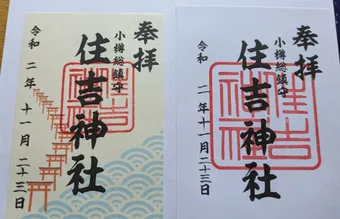 奉拝
小樽総鎮守
住吉神社
令和二年十一月二十三日
奉拝
小樽総鎮守
住吉神社
令和二年十一月二十三日